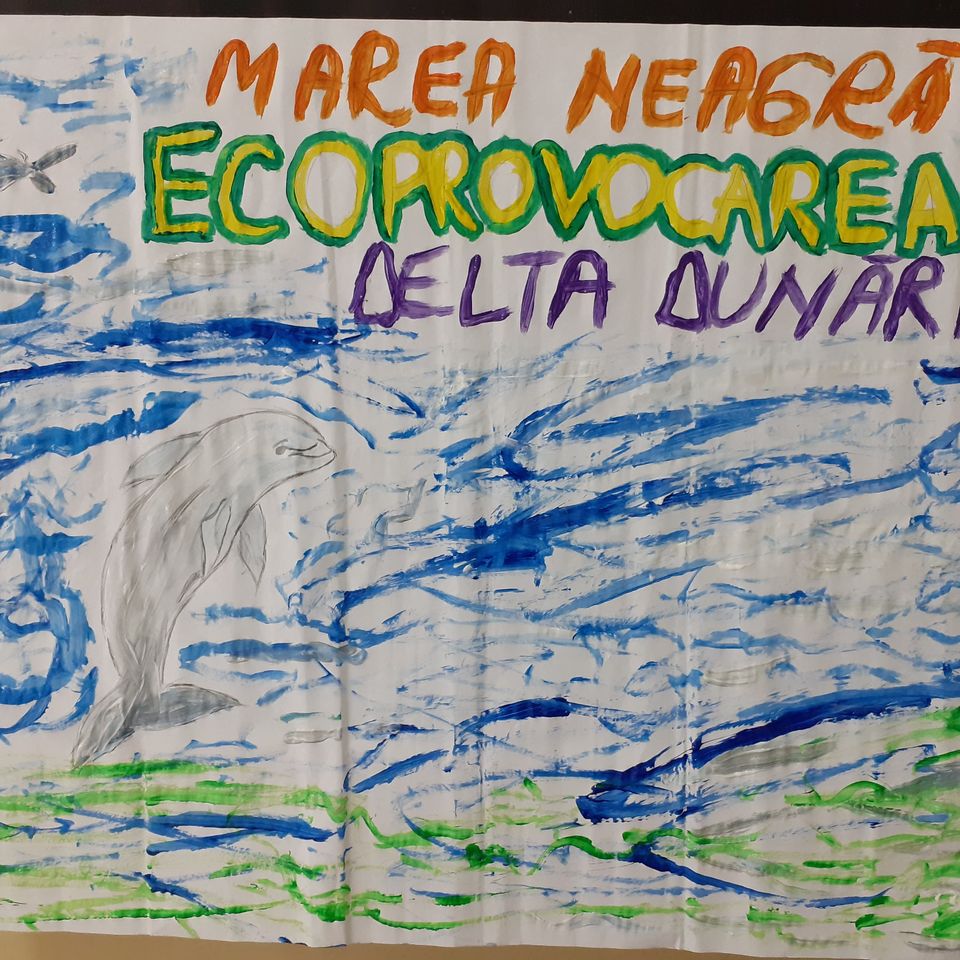 MAREA NEAGRĂ
ECOPROVOCAREA
DELTA DUNĂR